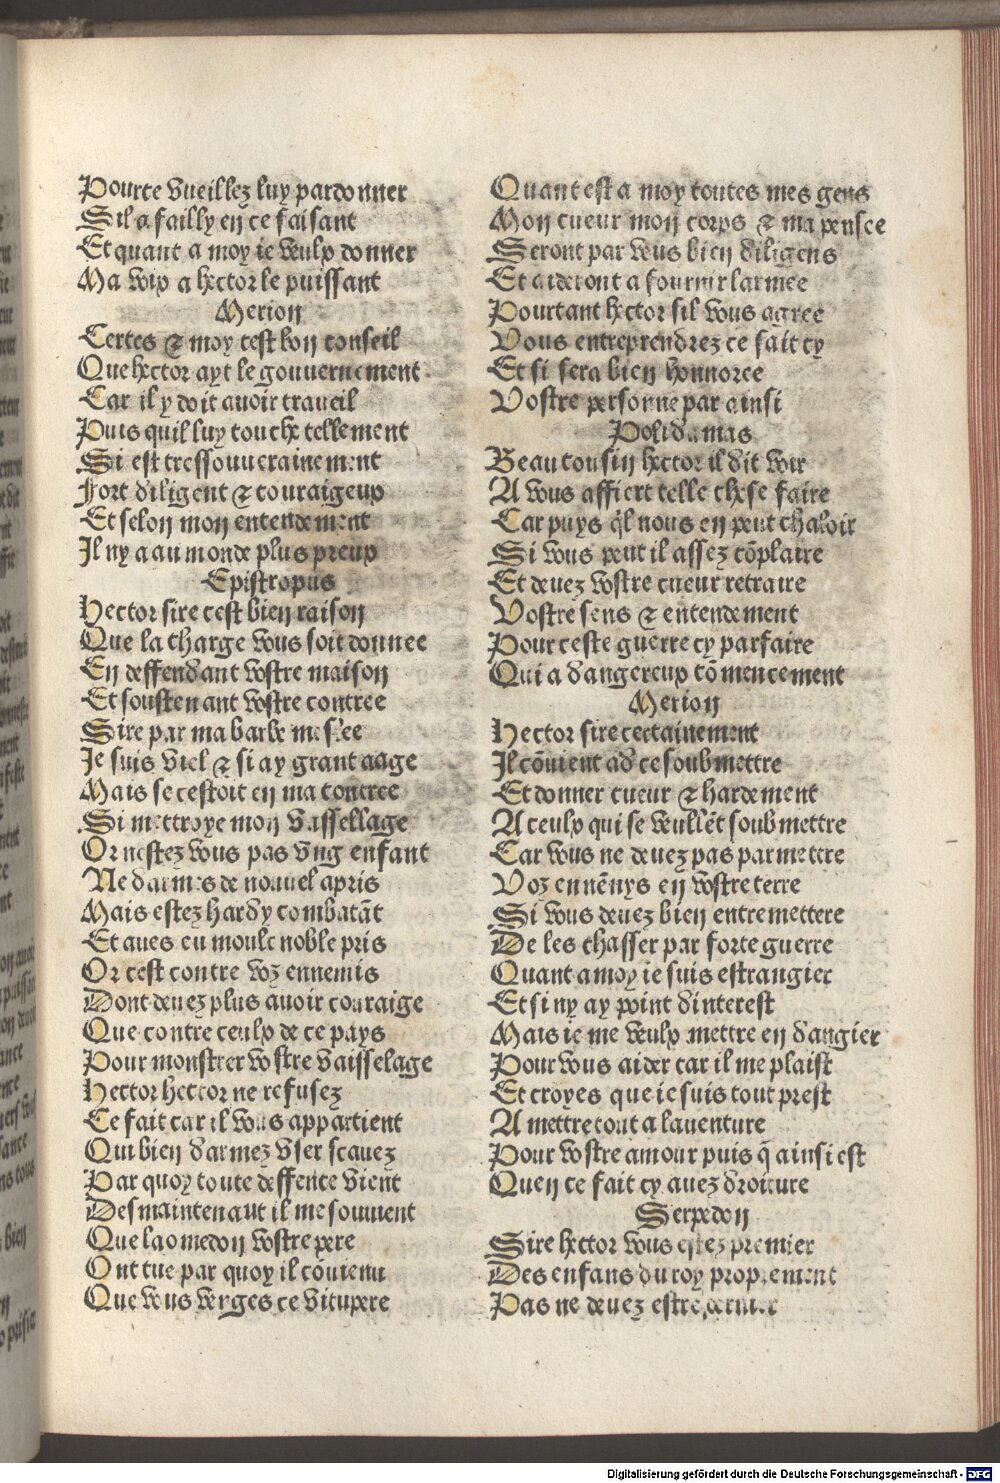 Pource vueillez luy pardonner
Sil a failly en ce faisant
Et quant a moy ie veulx donner
Ma voix a hector le puissant
Merion
Certes & moy cest bon conseil
Que hector ayt le gouuernement
Car il y doit auoir traueil
Puis quil luy touche tellement
Si est tressouuerainement
Fort diligent & couraigeux
Et selon mon entendement
Il ny a au monde plus preux
Epistropus
Hector sire cest bien raison
Que la charge vous soit donnee
En deffendant vostre maison
Et soustenant vostre contree
Sire par ma barbe meslee
Je suis viel & si ay grant aage
Mais se cestoit en ma contree
Si mettroye mon vassellage
Or nestez vous pas vng enfant
Ne darmes de nouuel apris
Mais estez hardy combatãt
Et aues eu moult noble pris
Or cest contre voz ennemis
Dont deuez plus auoir couraige
Que contre ceulx de ce pays
Pour monstrer vostre vaisselage
Hector hector ne refusez
Ce fait car il vous appartient
Qui bien darmez vser scauez
Par quoy toute deffence vient
Des maintenant il me souuient
Que laomedon vostre pere
Ont tue par quoy il cõuienu
Que vous verges ce vitupere
Quant est a moy toutes mes gens
Mon cueur mon corps & ma pensee
Seront par vous bien diligens
Et aideront a fournir larmee
Pourtant hector sil vous agree
Vous entreprendrez ce fait cy
Et si sera bien honnoree
Vostre personne par ainsi
Polidamas
Beau cousin hector il dit voir
A vous affiert telle chose faire
Car puys q̃l nous en peut chaloir
Si vous peut il assez cõplaire
Et deuez vostre cueur retraire
Vostre sens & entendement
Pour ceste guerre cy parfaire
Qui a dangereux cõmencement
Merion
Hector sire certainement
Il cõuient ad ce soubmettre
Et donner cueur & hardement
A ceulx qui se veullẽt soubmettre
Car vous ne deuez pas parmettre
Voz ennẽnys en vostre terre
Si vous deuez bien entremettere
De les chasser par forte guerre
Quant a moy ie suis estrangier
Et si ny ay point dinterest
Mais ie me veulx mettre en dangier
Pour vous aider car il me plaist
Et croyes que ie suis tout prest
A mettre tout a lauenture
Pour vostre amour puis q̃ ainsi est
Quen ce fait cy auez droiture
Serpedon
Sire hector vous estez premier
Des enfans du roy proprement
Pas ne deuez estre dernier
Digitalisierung gefördert durch die Deutsche Forschungsgemeinschaft - DFG